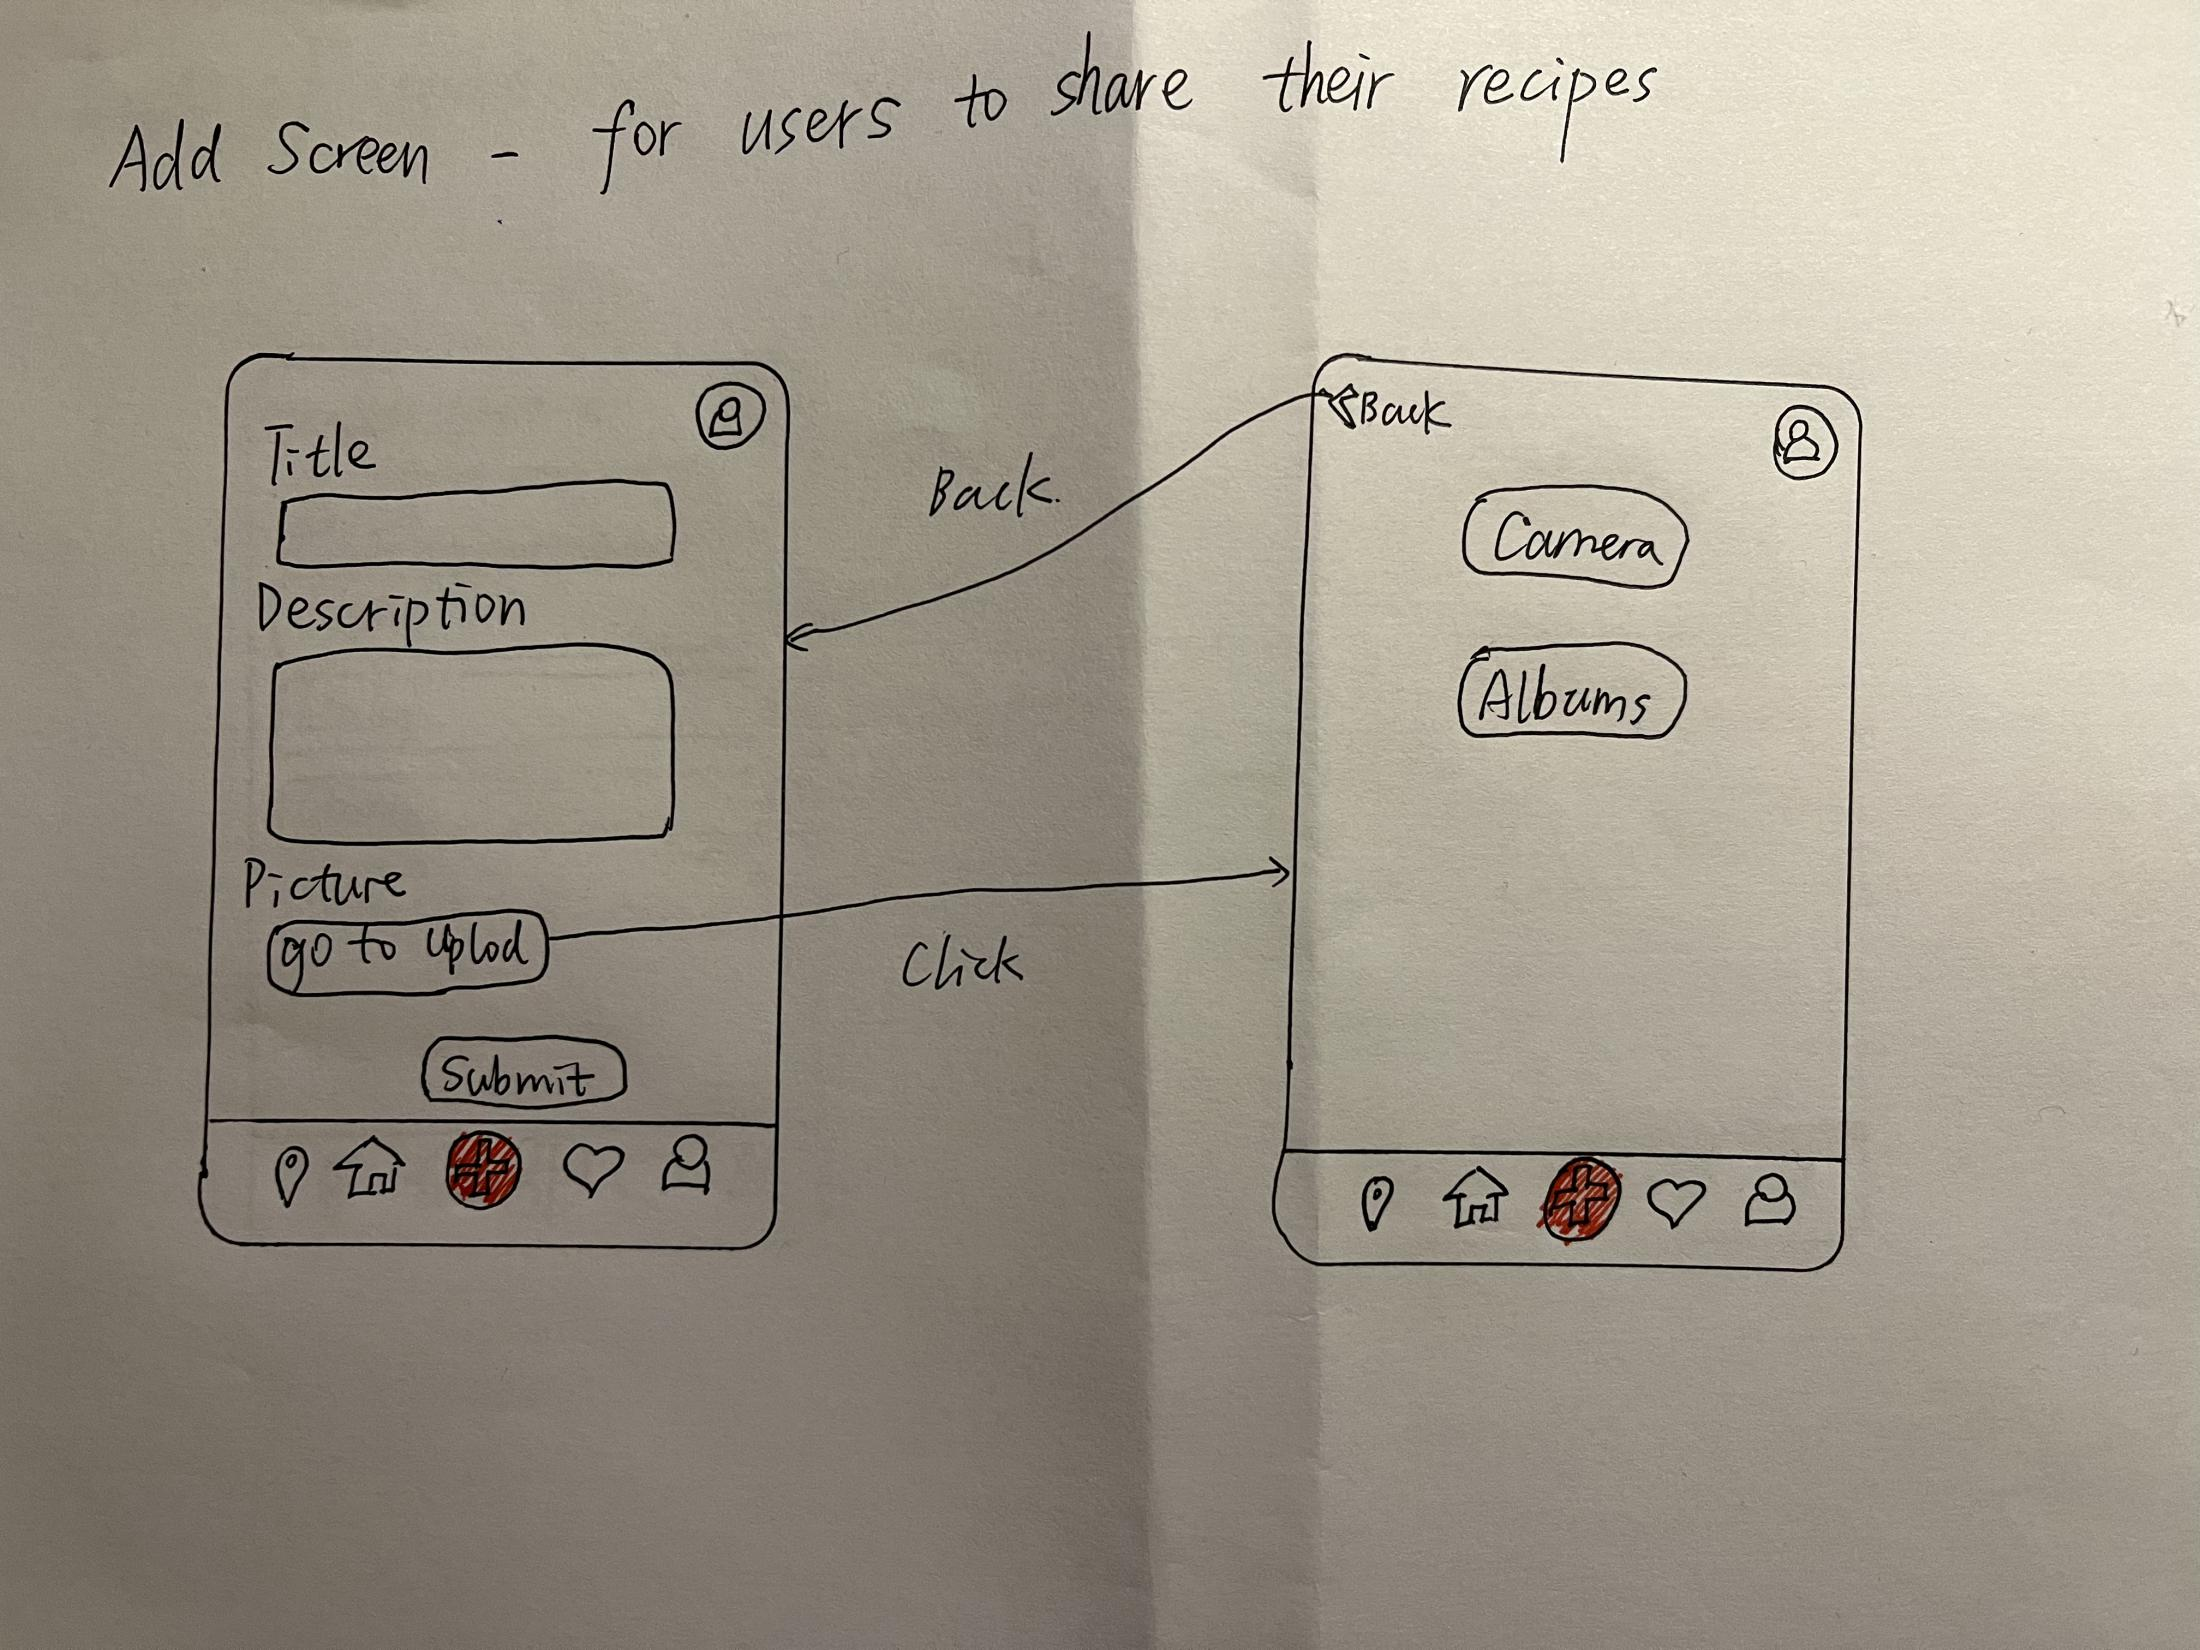 Add Screen - for users to share their recipes
Title
Description
Picture
go to Uplod
Submit
Back.
Click
Back
Camera
Albums